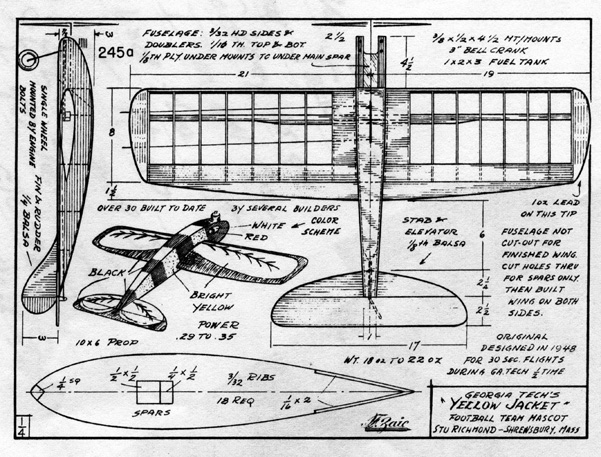 FUSELAGE: 3/32 HD SIDES &
DOUBLERS. 1/16 TH. TOP & BOT.
1/8TH PLY. UNDER MOUNTS TO UNDER MAIN SPAR
2 1/2
4 1/2
3/8 x 1/2 x 4 1/2 MT/MOUNTS
3" BELL CRANK
1 x 2 x 3 FUEL TANK
3
245a
21
19
8
SINGLE WHEEL
MOUNTED BY ENGINE
BOLTS
FIN & RUDDER
1/4 BALSA
3
OVER 30 BUILT TO DATE
BY SEVERAL BUILDERS
WHITE
RED
COLOR
SCHEME
BLACK
BRIGHT
YELLOW
POWER
.29 TO .35
10 x 6 PROP
STAB &
ELEVATOR
1/8TH BALSA
6
2 1/2
17
1 oz LEAD
ON THIS TIP
FUSELAGE NOT
CUT-OUT FOR
FINISHED WING.
CUT HOLES THRU
FOR SPARS ONLY.
THEN BUILT
WING ON BOTH
SIDES.
WT. 18 oz TO 22 oz
ORIGINAL
DESIGNED IN 1948
FOR 30 SEC. FLIGHTS
DURING GA. TECH 1/2 TIME
1/4 SQ
1/2 x 1/2
1/4 x 1/2
SPARS
3/32 RIBS
18 REQ
1/16 x 2
1/4
F. Zaic
GEORGIA TECH'S
"YELLOW JACKET"
FOOTBALL TEAM MASCOT
STU RICHMOND - SHREWSBURY, MASS